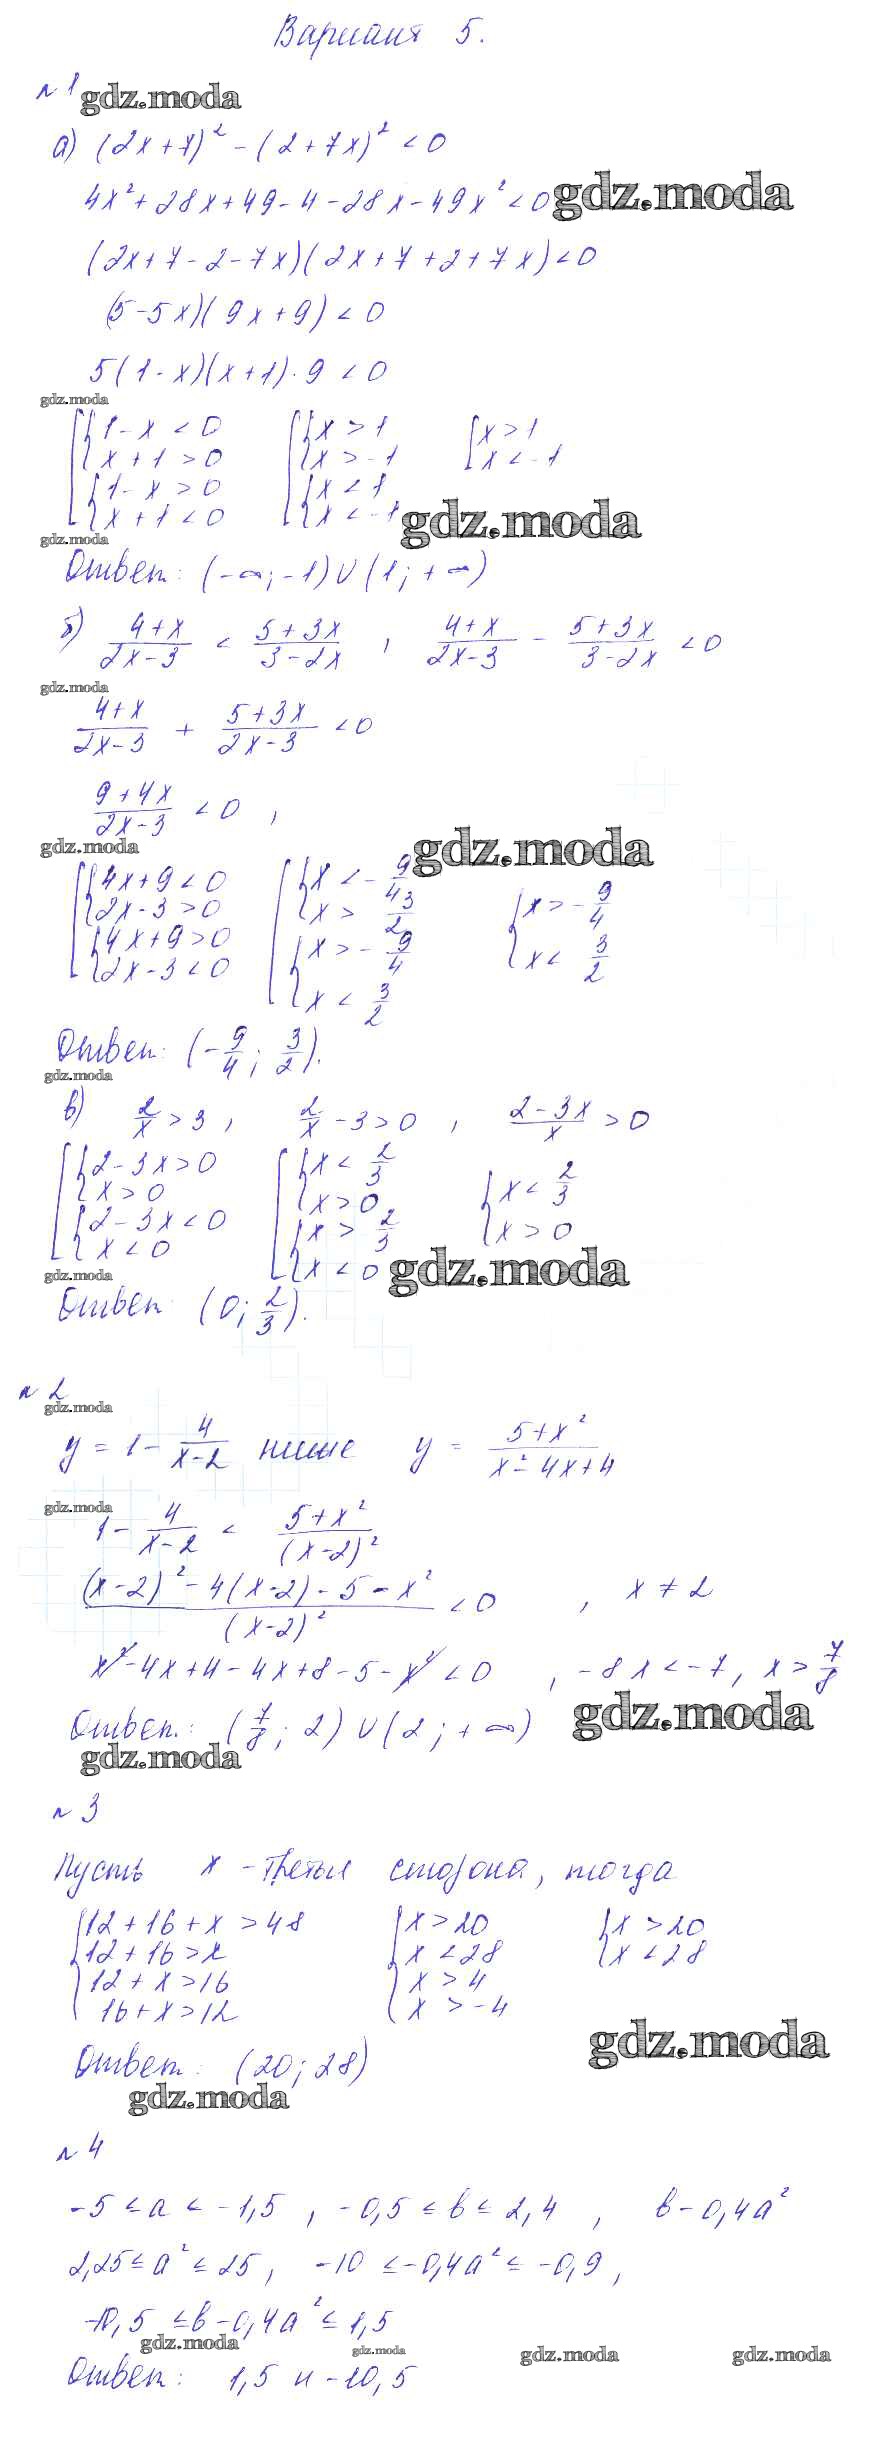 Вариант 5.
№ 1
gdz.moda
а) (2x+7)² - (2+7x)² < 0
4x² + 28x + 49 - 4 - 28x - 49x² < 0
gdz.moda
(2x+7-2-7x)(2x+7+2+7x) < 0
(5-5x)(9x+9) < 0
5(1-x)(x+1)·9 < 0
gdz.moda
[ { 1-x < 0 [ { x > 1 [ x > 1
x+1 > 0 x > -1 x < -1
{ 1-x > 0 { x < 1
x+1 < 0 x < -1
gdz.moda
gdz.moda
Ответ: (-∞; -1) ∪ (1; +∞)
б) (4+x)/(2x-3) < (5+3x)/(3-2x) , (4+x)/(2x-3) - (5+3x)/(3-2x) < 0
gdz.moda
(4+x)/(2x-3) + (5+3x)/(2x-3) < 0
(9+4x)/(2x-3) < 0 ,
gdz.moda
gdz.moda
[ { 4x+9 < 0 [ { x < -9/4 { x > -9/4
2x-3 > 0 x > 3/2 x < 3/2
{ 4x+9 > 0 { x > -9/4
2x-3 < 0 x < 3/2
Ответ: (-9/4; 3/2).
gdz.moda
в) 2/x > 3 , 2/x - 3 > 0 , (2-3x)/x > 0
[ { 2-3x > 0 [ { x < 2/3 { x < 2/3
x > 0 x > 0 x > 0
{ 2-3x < 0 { x > 2/3
x < 0 x < 0
gdz.moda
gdz.moda
Ответ: (0; 2/3).
№ 2
gdz.moda
y = 1 - 4/(x-2) ниже y = (5+x²)/(x²-4x+4)
gdz.moda
1 - 4/(x-2) < (5+x²)/(x-2)²
((x-2)² - 4(x-2) - 5 - x²)/(x-2)² < 0 , x ≠ 2
x² - 4x + 4 - 4x + 8 - 5 - x² < 0 , -8x < -7, x > 7/8
gdz.moda
Ответ.: (7/8; 2) ∪ (2; +∞)
gdz.moda
№ 3
Пусть x - третья сторона, тогда
{ 12+16+x > 48 { x > 20 { x > 20
12+16 > x x < 28 x < 28
12+x > 16 x > 4
16+x > 12 x > -4
gdz.moda
Ответ: (20; 28)
gdz.moda
№ 4
-5 ≤ a ≤ -1,5 , -0,5 ≤ b ≤ 2,4 , b - 0,4a²
2,25 ≤ a² ≤ 25 , -10 ≤ -0,4a² ≤ -0,9 ,
-10,5 ≤ b - 0,4a² ≤ 1,5
gdz.moda
gdz.moda
gdz.moda
gdz.moda
Ответ: 1,5 и -10,5